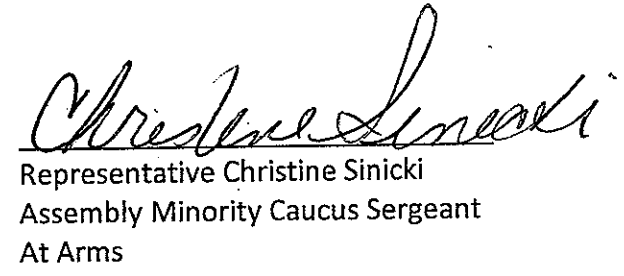 Christine Sinicki
Representative Christine Sinicki
Assembly Minority Caucus Sergeant
At Arms